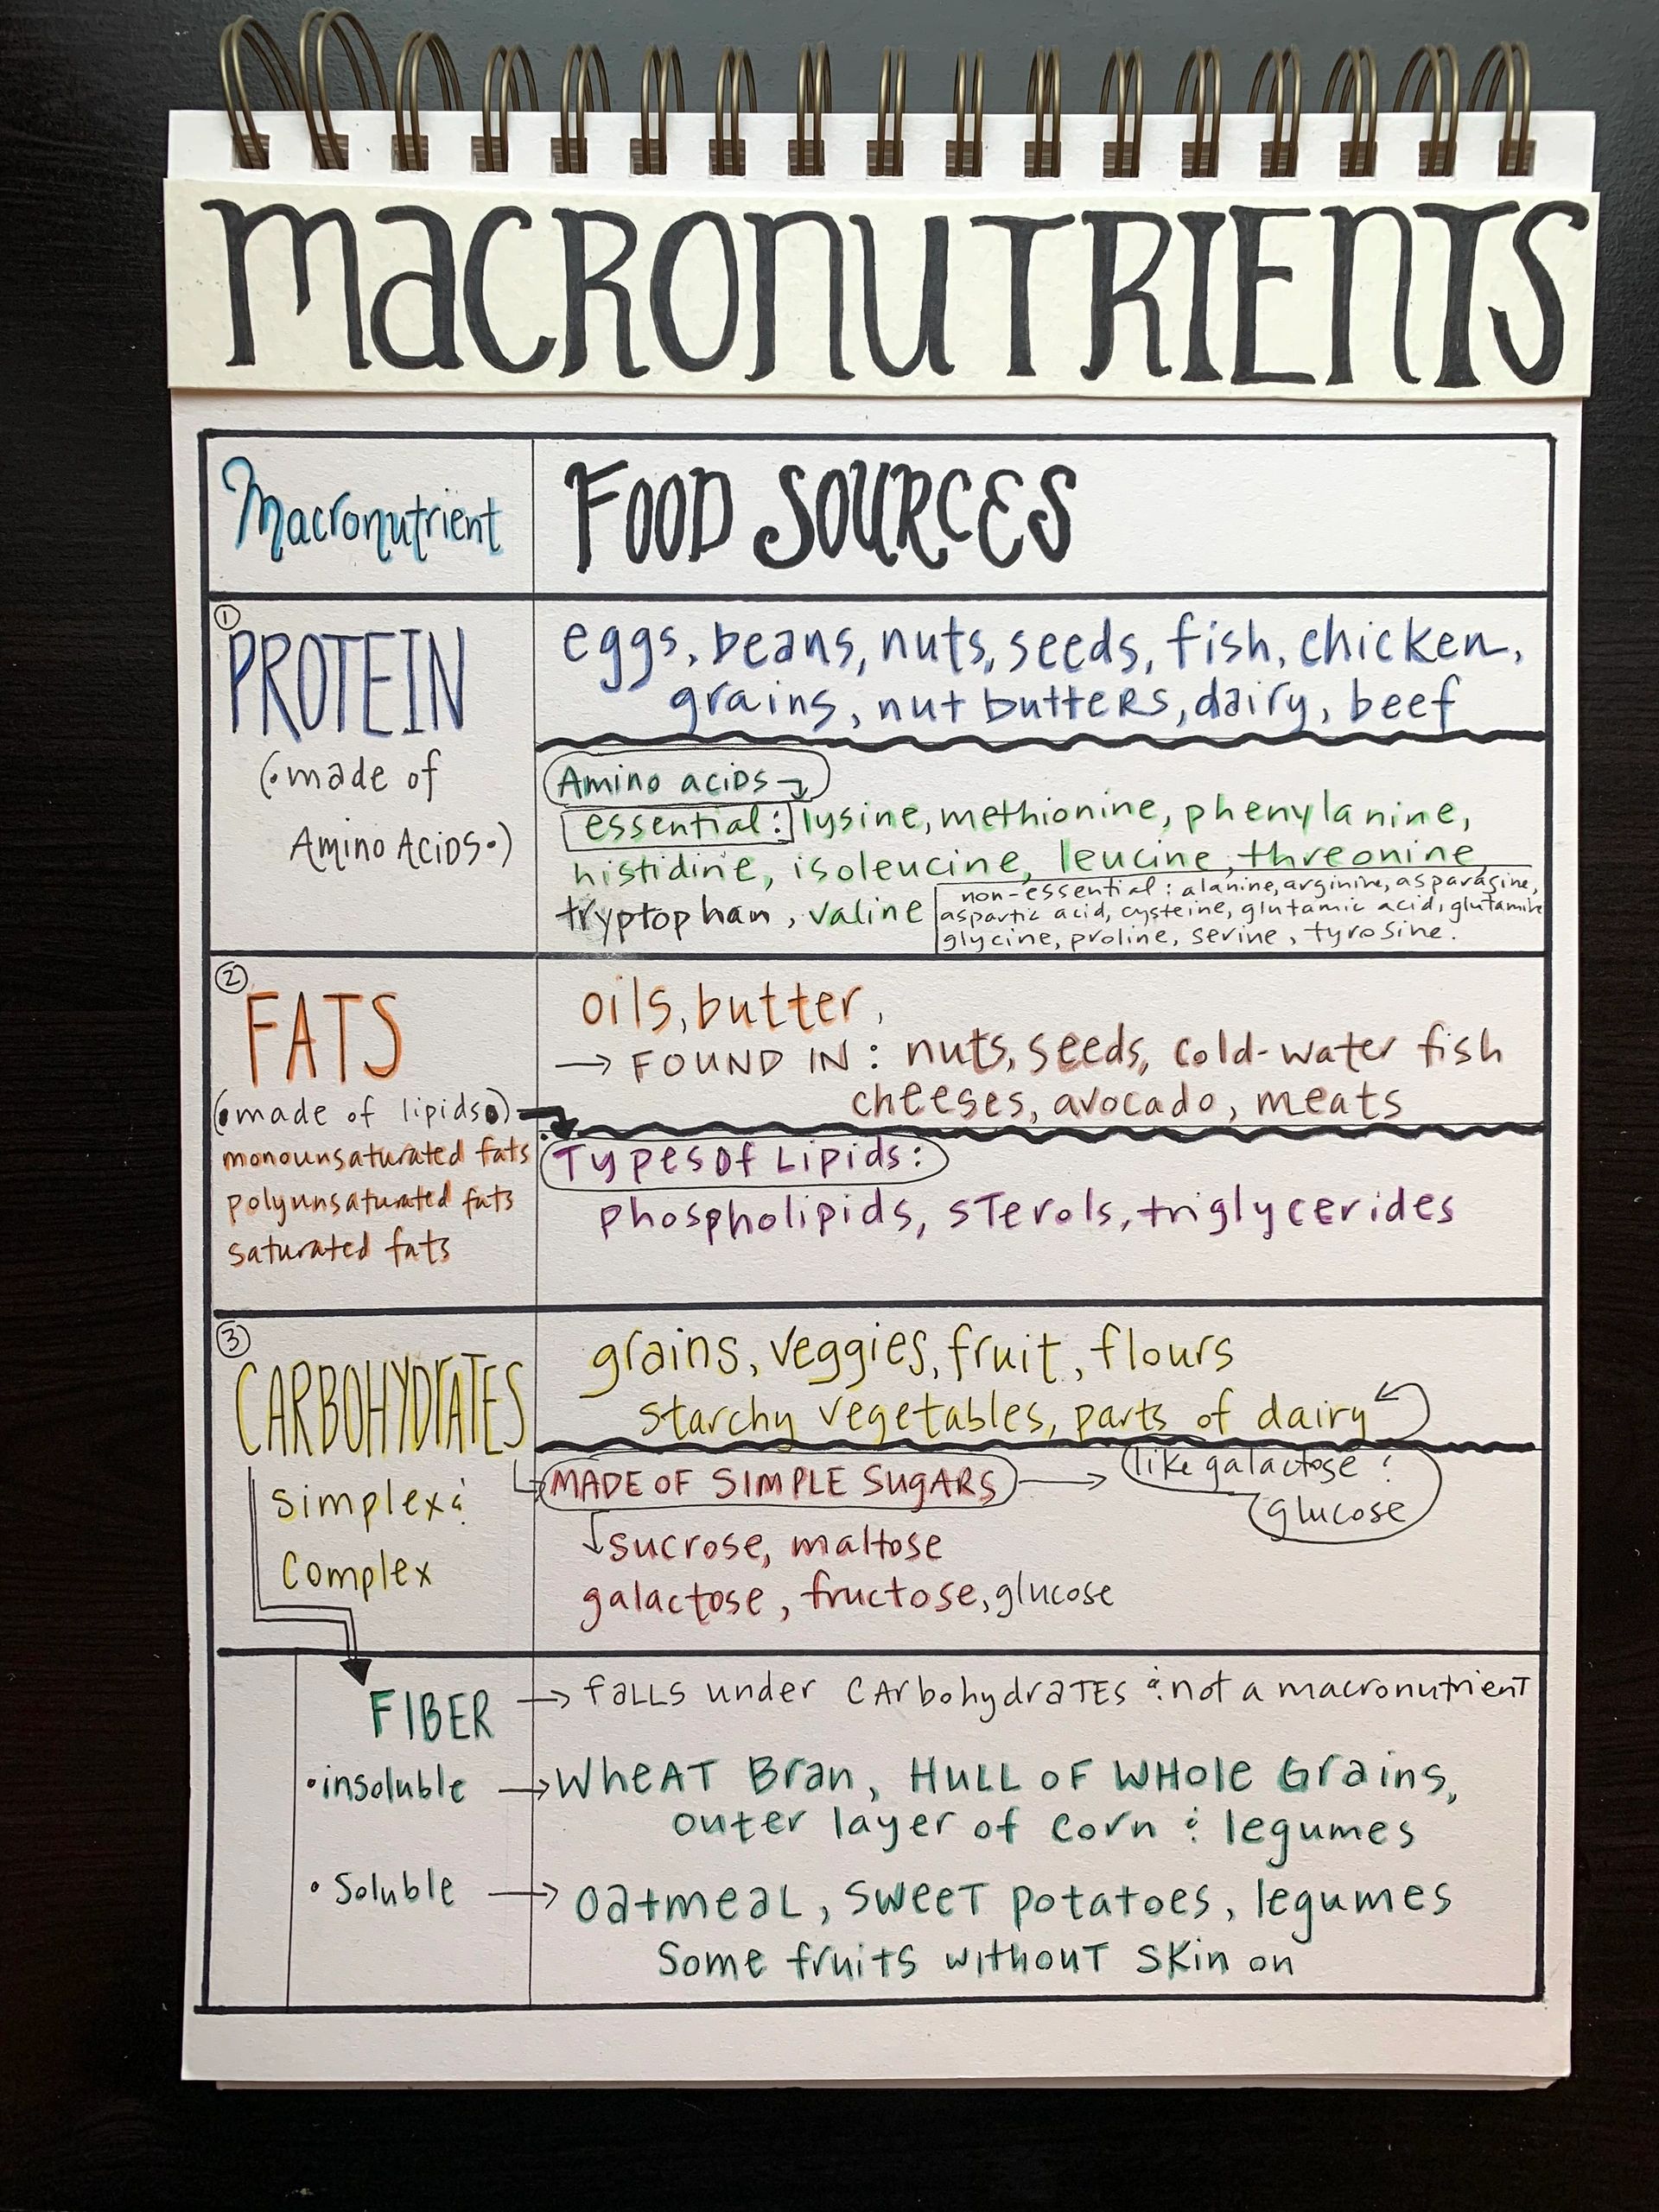 MACRONUTRIENTS
Macronutrient
FOOD SOURCES
①
PROTEIN
(•made of
AMINO ACIDS•)
eggs, beans, nuts, seeds, fish, chicken,
grains, nut butters, dairy, beef
Amino acids
essential: lysine, methionine, phenylanine,
histidine, isoleucine, leucine, threonine
tryptophan, valine
non-essential: alanine, arginine, asparagine,
aspartic acid, cysteine, glutamic acid, glutamine
glycine, proline, serine, tyrosine.
②
FATS
(•made of lipids•)
monounsaturated fats
polyunsaturated fats
saturated fats
oils, butter,
→ FOUND IN: nuts, seeds, cold-water fish
cheeses, avocado, meats
Types of Lipids:
phospholipids, sterols, triglycerides
③
CARBOHYDRATES
simplex &
complex
grains, veggies, fruit, flours
starchy vegetables, parts of dairy
MADE OF SIMPLE SUGARS → like galactose &
glucose
↓ sucrose, maltose
galactose, fructose, glucose
FIBER → falls under carbohydrates & not a macronutrient
• insoluble → Wheat Bran, Hull of Whole Grains,
outer layer of corn & legumes
• Soluble → oatmeal, sweet potatoes, legumes
Some fruits without skin on